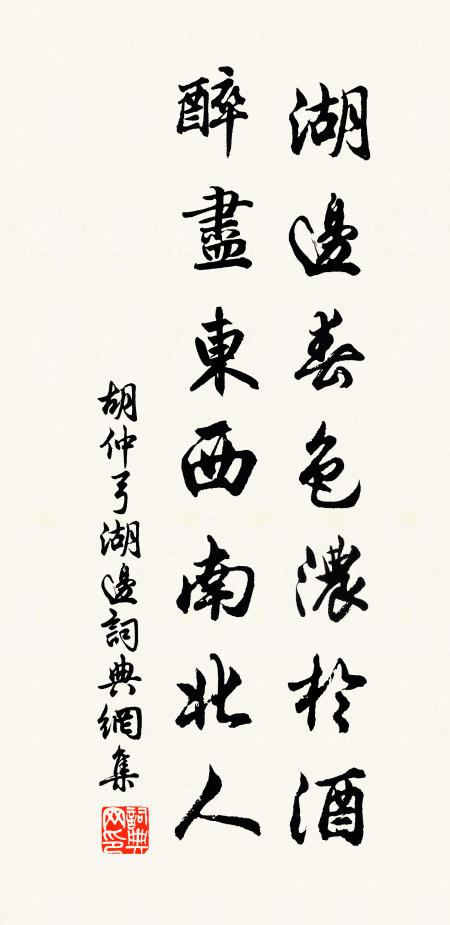 湖邊春色濃於酒
醉盡東西南北人
胡仲弓湖邊詞典網集
詞典網印